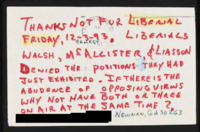 THANKS NOT FOR LIBERIAL
FRIDAY, 12-3-93. LIBERIALS
WALSH, McALLISTER, & LIASSON
DENIED THE POSITIONS THEY HAD
JUST EXHIBITED. IF THERE IS THE
ABUDENCE OF OPPOSING VIEWS
WHY NOT HAVE BOTH OR THREE
ON AIR AT THE SAME TIME?
NEWNAN, GA 30263